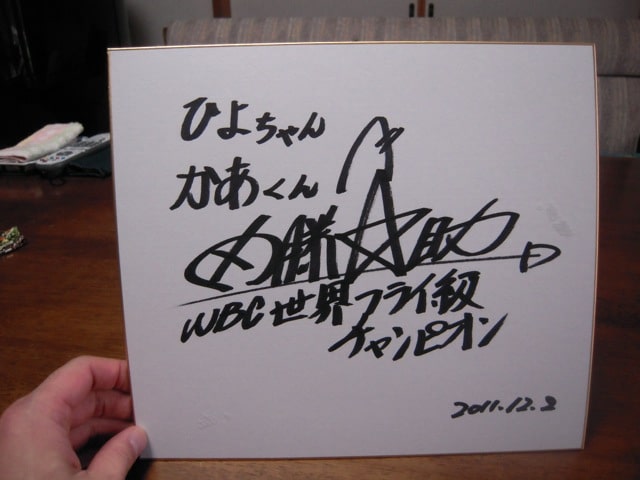 ひよちゃん
かあくん
内藤大助
WBC世界フライ級
チャンピオン
2011.12.2